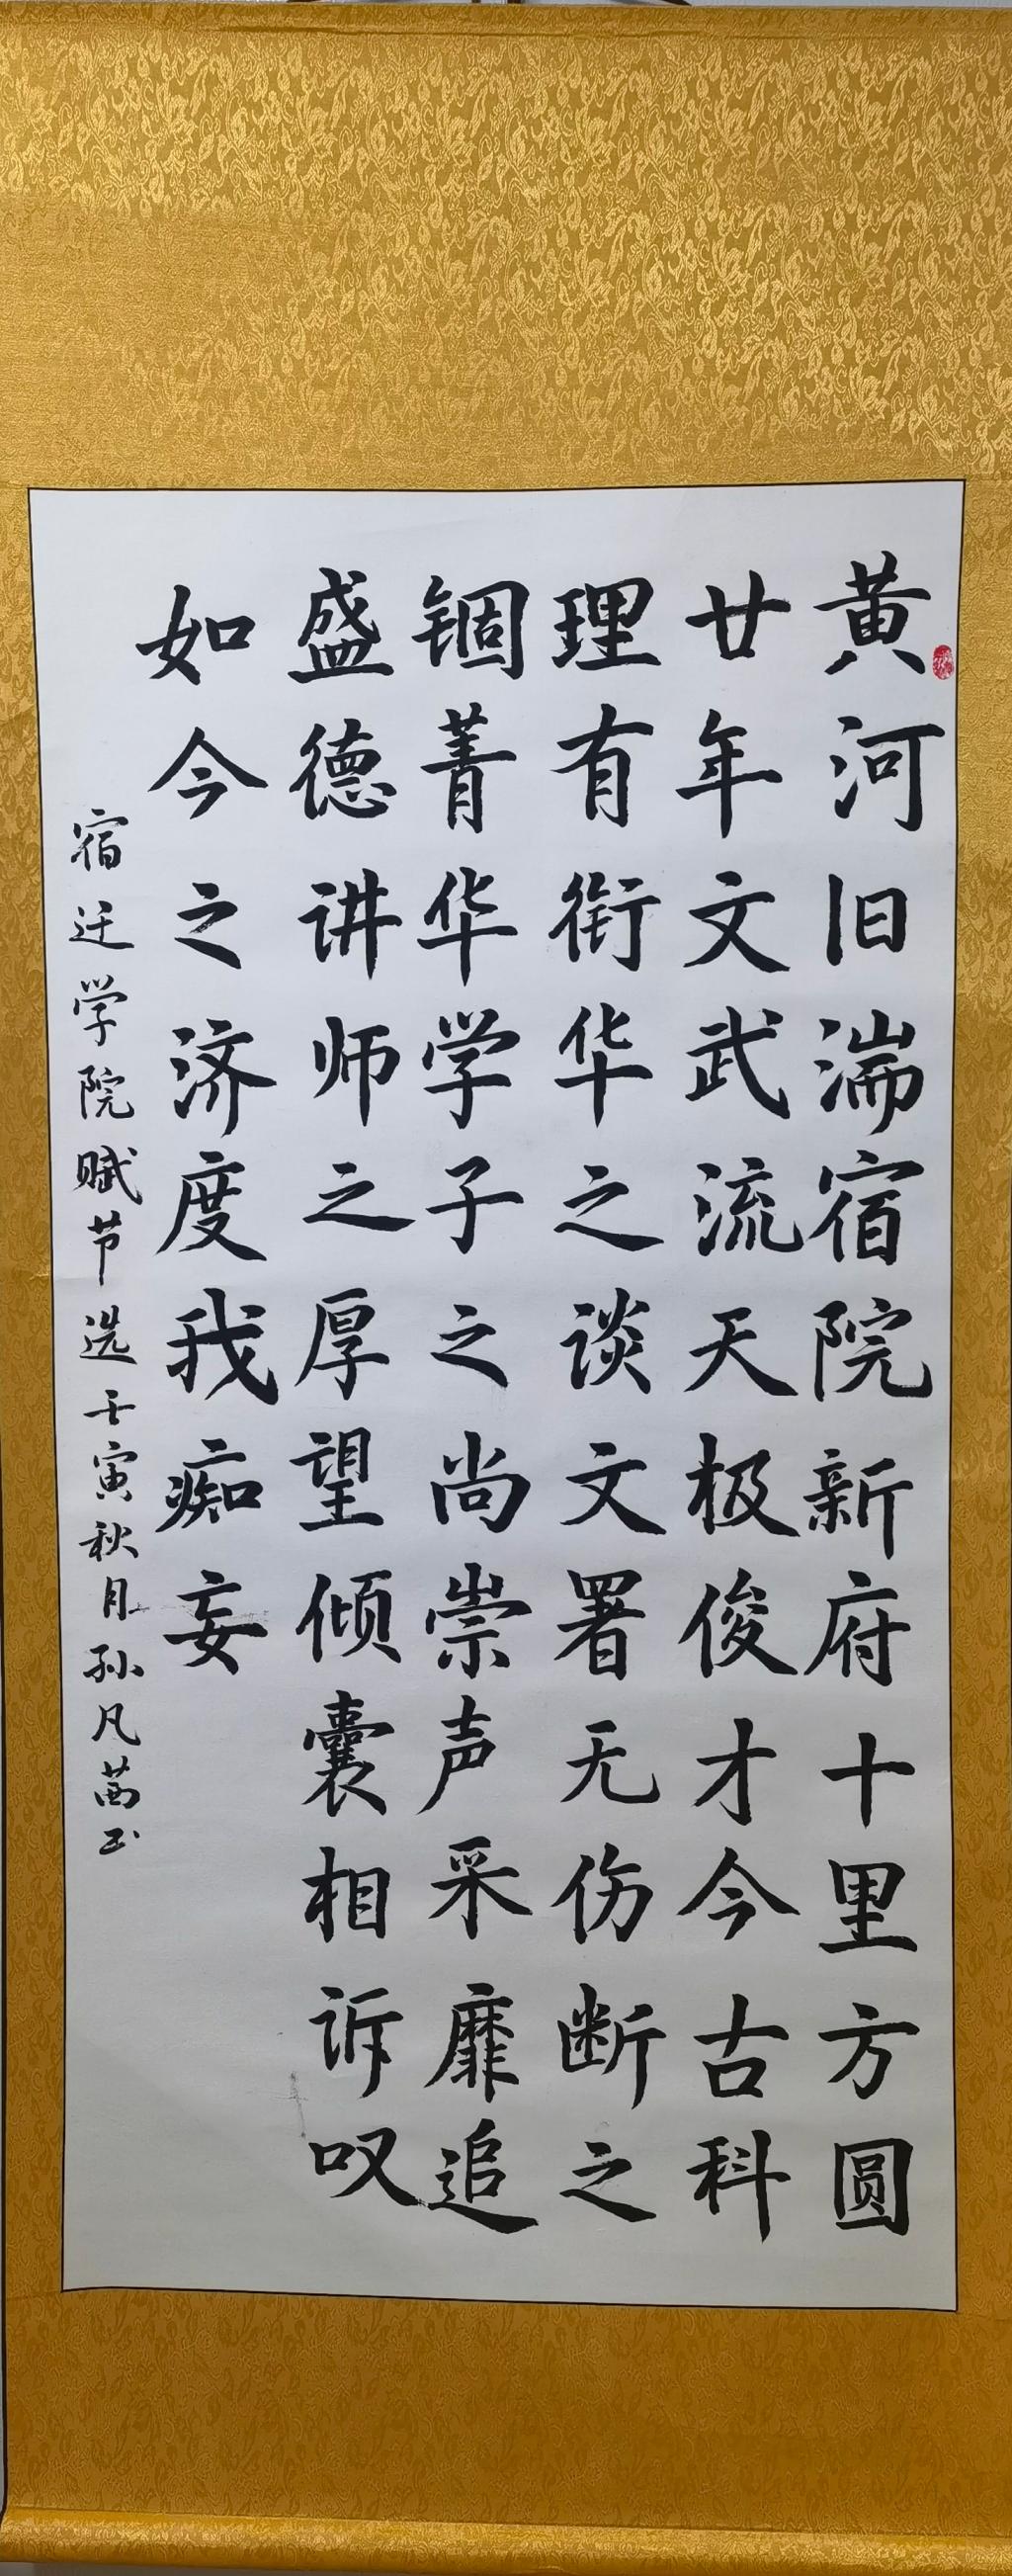 黄河旧湍宿院新府十里方圆
廿年文武流天极俊才今古科
理有衔华之谈文署无伤断之
锢菁华学子之尚崇声采靡追
盛德讲师之厚望倾囊相诉叹
如今之济度我痴妄
宿迁学院赋节选壬寅秋月孙凡茜书